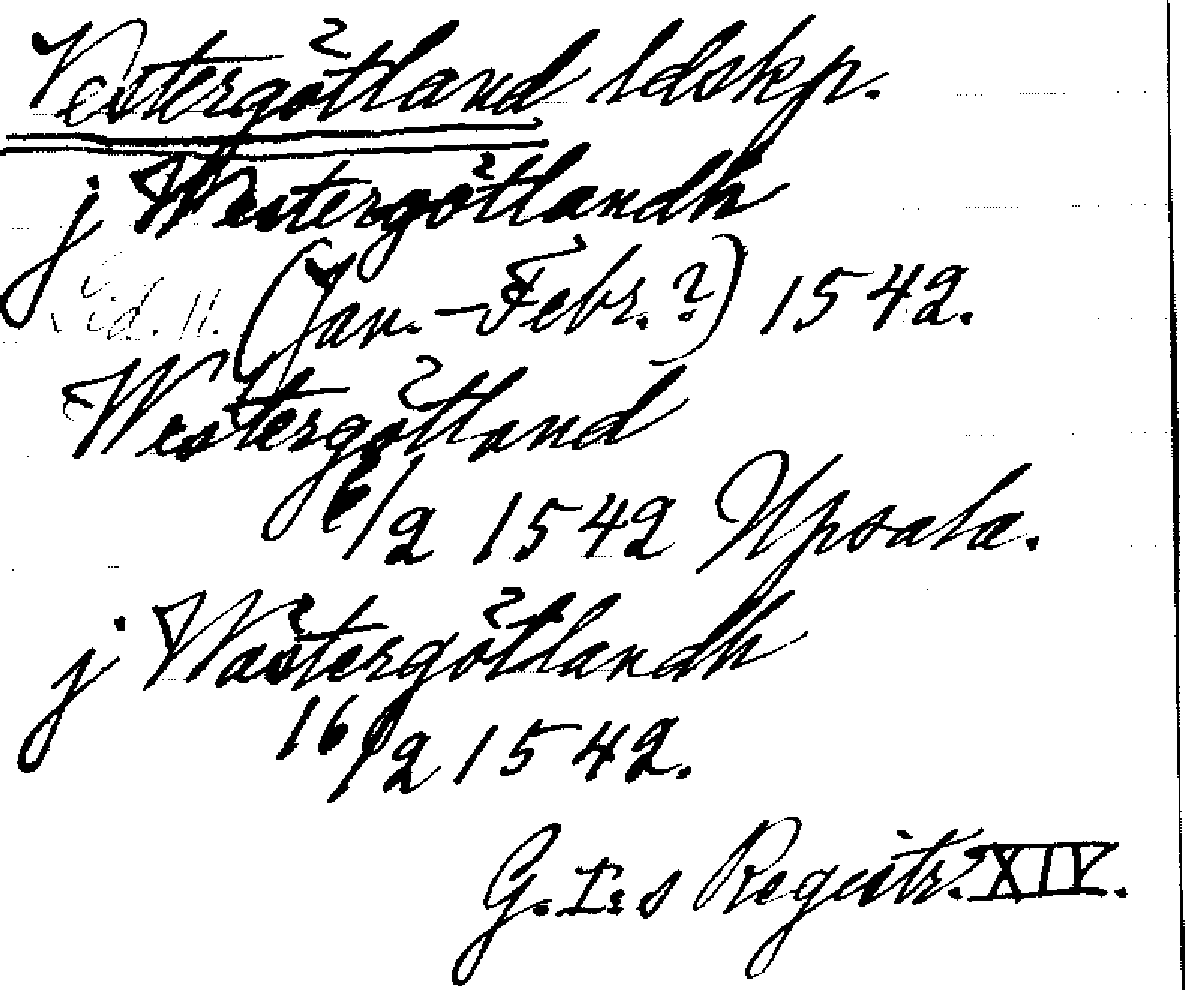 Vestergötland ldskp.
j Westergötlandh
Sid. 11. (Jan.-Febr.?) 1542.
Westergötland
6/2 1542 Upsala.
j Wästergötlandh
16/2 1542.
G. I:s Registr. XIV.